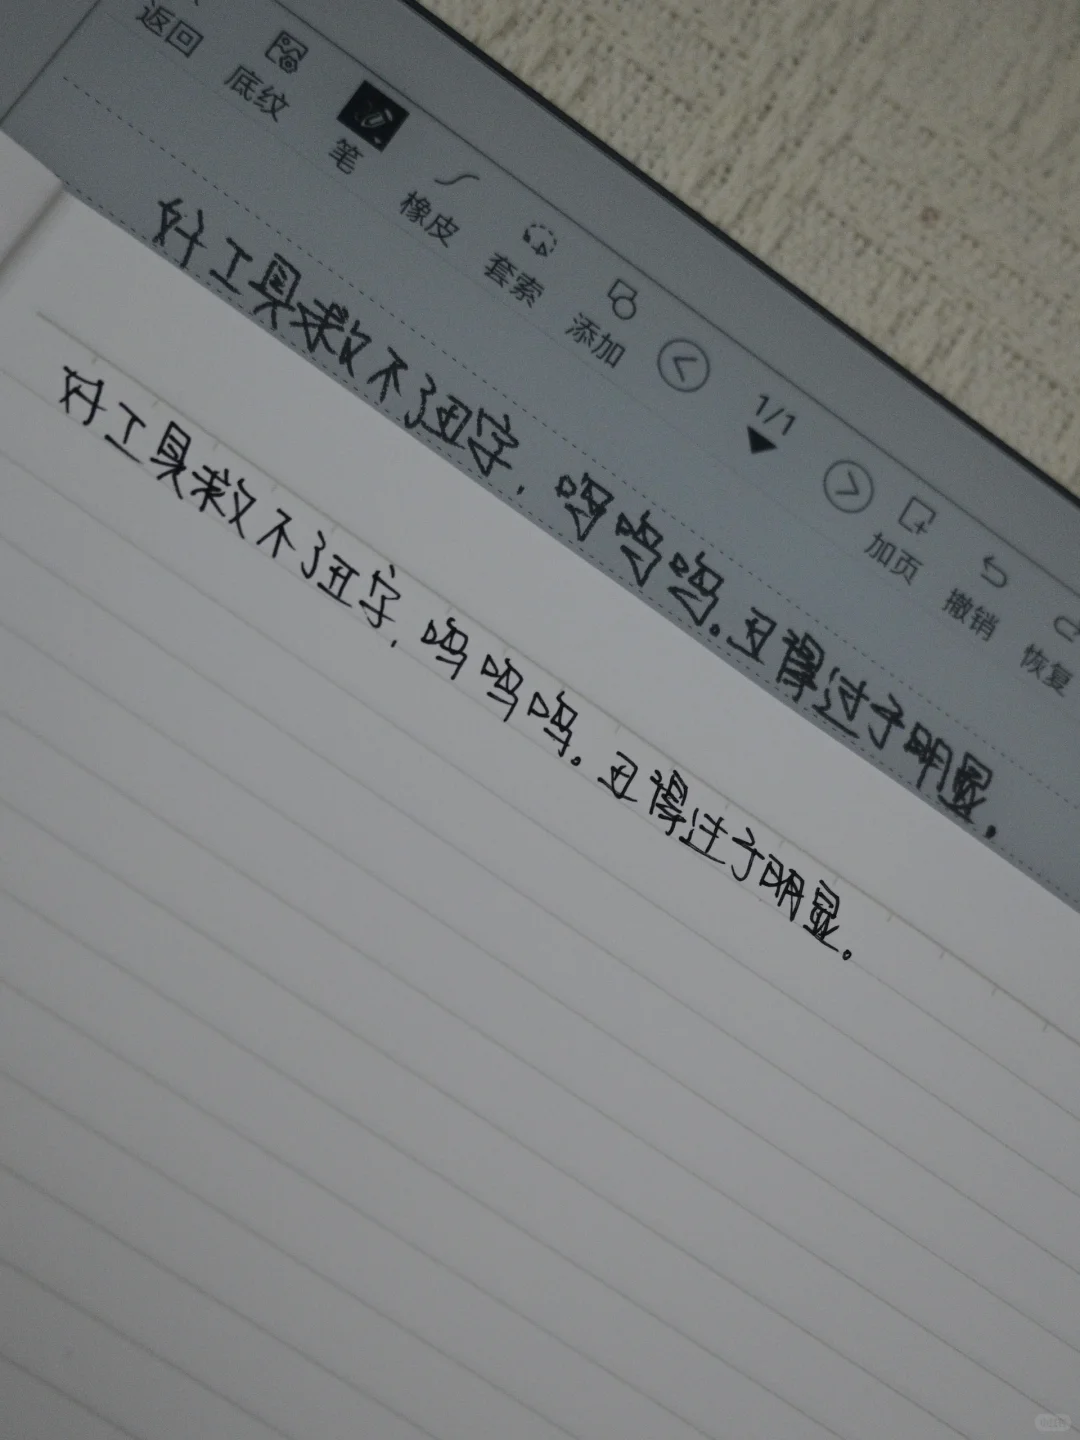 返回 底纹 笔 橡皮 套索 添加 1/1 加页 撤销 恢复
好工具救不了丑字，呜呜呜。丑得过于明显。
好工具救不了丑字，呜呜呜。丑得过于明显。